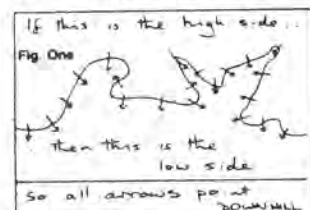 If this is the high side..
Fig. One
then this is the
low side
So all arrows point
DOWNHILL